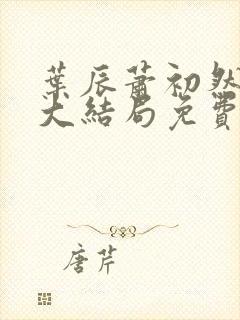 葉辰蕭初然
大結局免費
唐芹